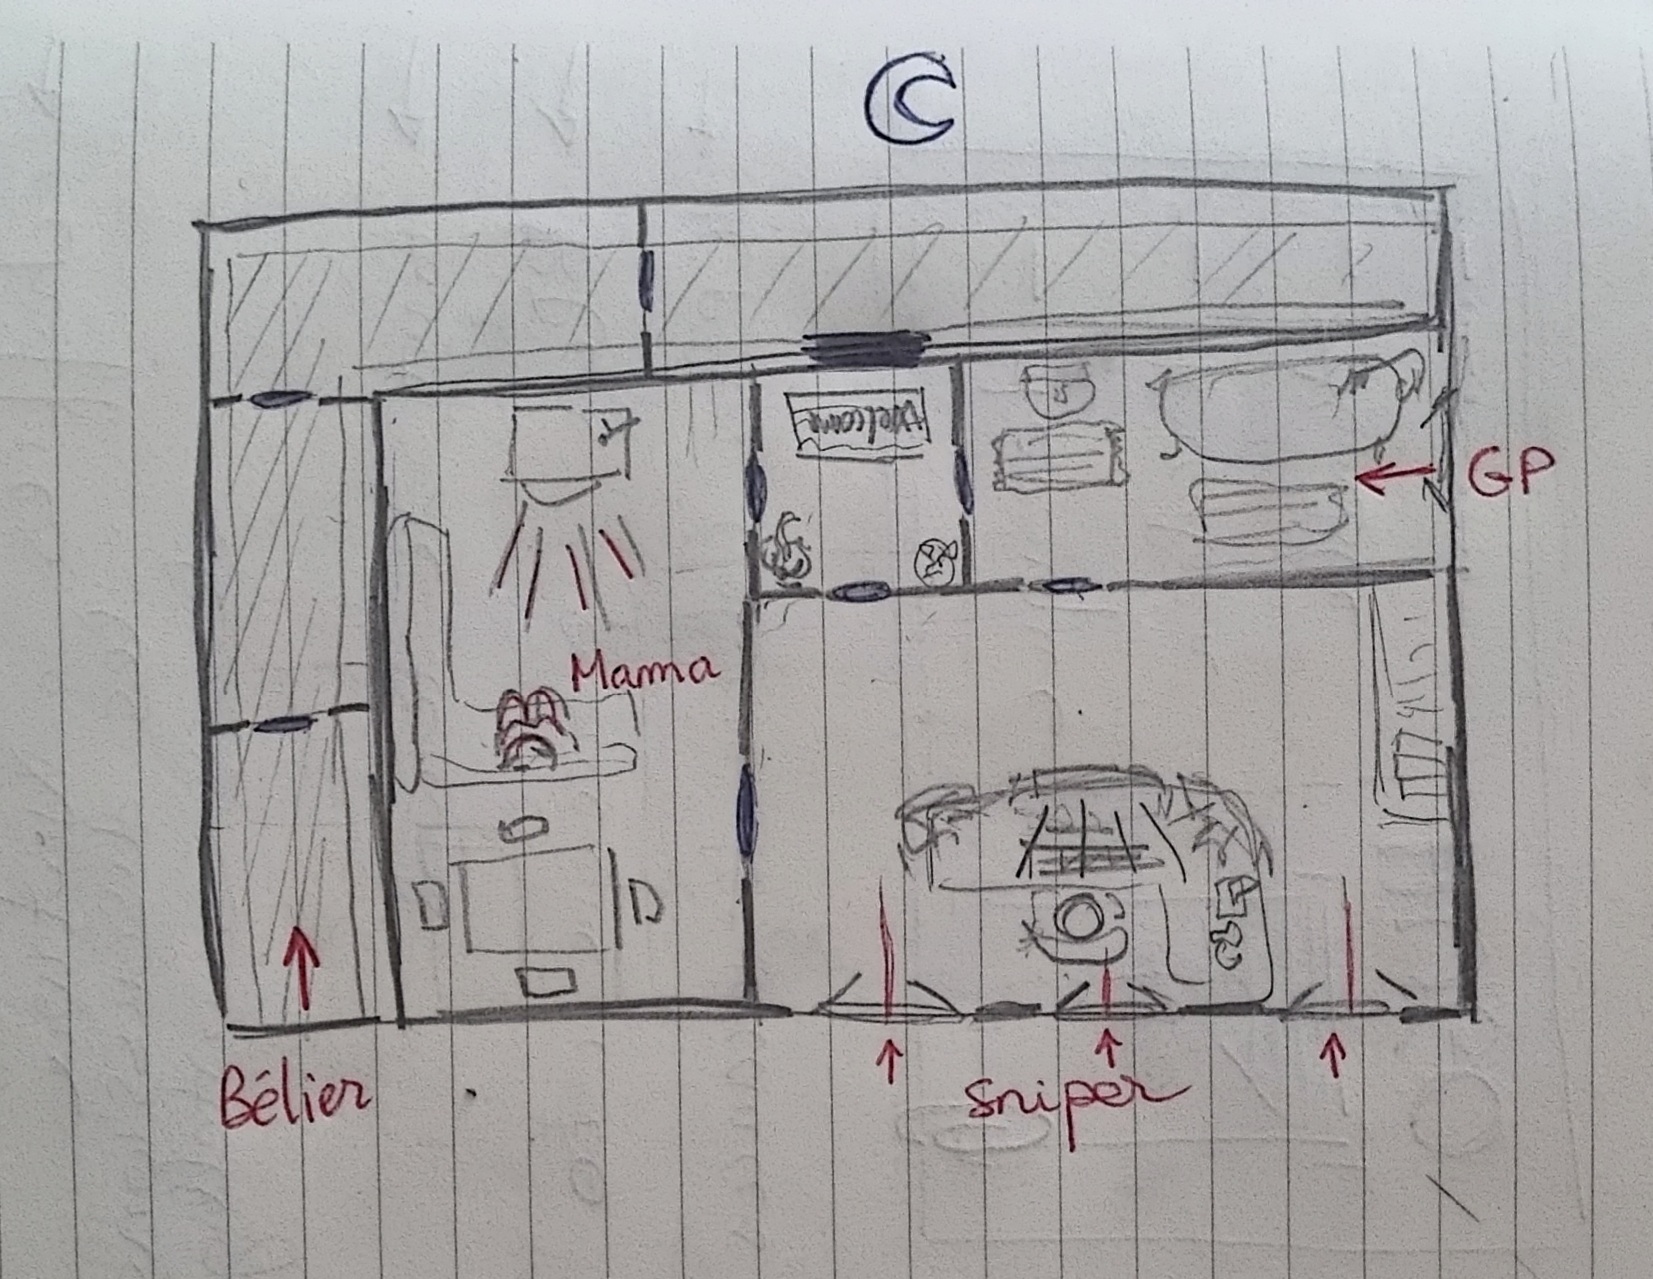 Welcome
GP
Mama
Bélier
Sniper